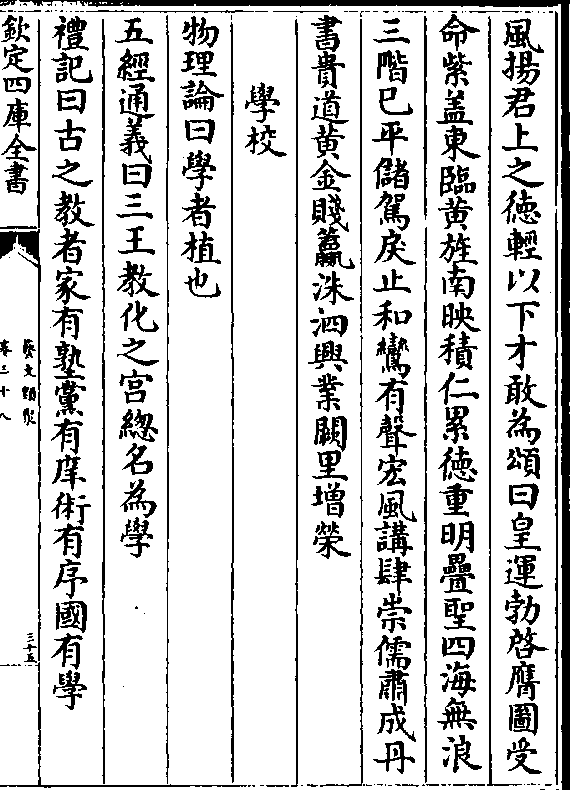 風揚君上之徳輕以下才敢為頌曰皇運勃啓膺圖受
命紫盖東臨黄旌南映積仁累徳重明疊聖四海無浪
三階已平儲駕戾止和鸞有聲宏風講肆崇儒肅成丹
書貴道黄金賤籯洙泗興業闕里增榮
學校
物理論曰學者植也
五經通義曰三王教化之宫緫名為學
禮記曰古之教者家有塾黨有庠術有序國有學
欽定四庫全書
藝文類聚
卷三十八
三十五